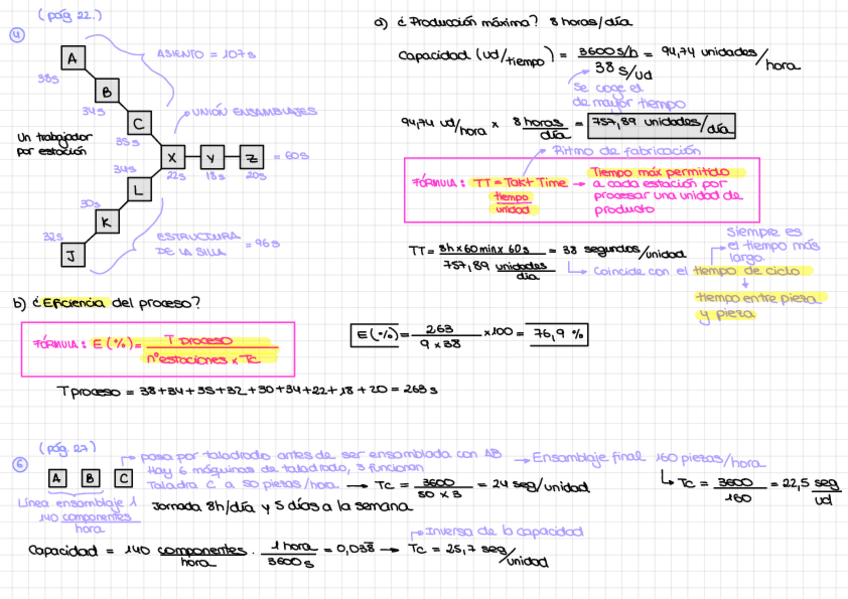 (pág 22.)
4
A
38s
B
34s
C
35s
ASIENTO = 107s
UNIÓN ENSAMBLAJES
Un trabajador
por estación
X
22s
Y
18s
Z
20s
= 60s
34s
L
30s
K
32s
J
ESTRUCTURA
DE LA SILLA = 96s
a) ¿Producción máxima? 8 horas/día
Capacidad (ud/tiempo) = 3600 s/h / 38 s/ud = 94,74 unidades/hora
se coge el
de mayor tiempo
94,74 ud/hora x 8 horas/día = 757,89 unidades/día
Ritmo de fabricación
FÓRMULA: TT = Takt Time → Tiempo máx permitido
a cada estación por
procesar una unidad de
producto
tiempo
unidad
TT = 8h x 60 min x 60 s / 757,89 unidades/día = 38 segundos/unidad
Siempre es
el tiempo más
largo
Coincide con el tiempo de ciclo
tiempo entre pieza
y pieza
b) ¿Eficiencia del proceso?
FÓRMULA: E (%) = T proceso / nº estaciones x Tc
E (%) = 263 / 9 x 38 x 100 = 76,9 %
T proceso = 38+34+35+32+30+34+22+18+20 = 263 s
(pág 27)
6
A B C
pasa por taladrado antes de ser ensamblada con AB
Hay 6 máquinas de taladrado, 3 funcionan
Taladra C a 50 piezas/hora → Tc = 3600 / 50 x 3 = 24 seg/unidad
Ensamblaje final 160 piezas/hora
Tc = 3600 / 160 = 22,5 seg/ud
Línea ensamblaje 1
140 componentes
hora
Jornada 8h/día y 5 días a la semana
Inversa de la capacidad
Capacidad = 140 componentes/hora · 1 hora/3600 s = 0,038 → Tc = 25,7 seg/unidad